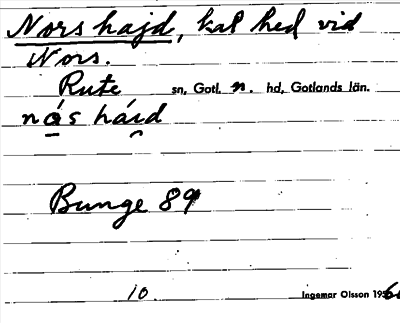 Nors hajd, kal hed vid
Nors.
Rute sn, Gotl. n. hd, Gotlands län.
nás háid
Bunge 89
10 Ingemar Olsson 195